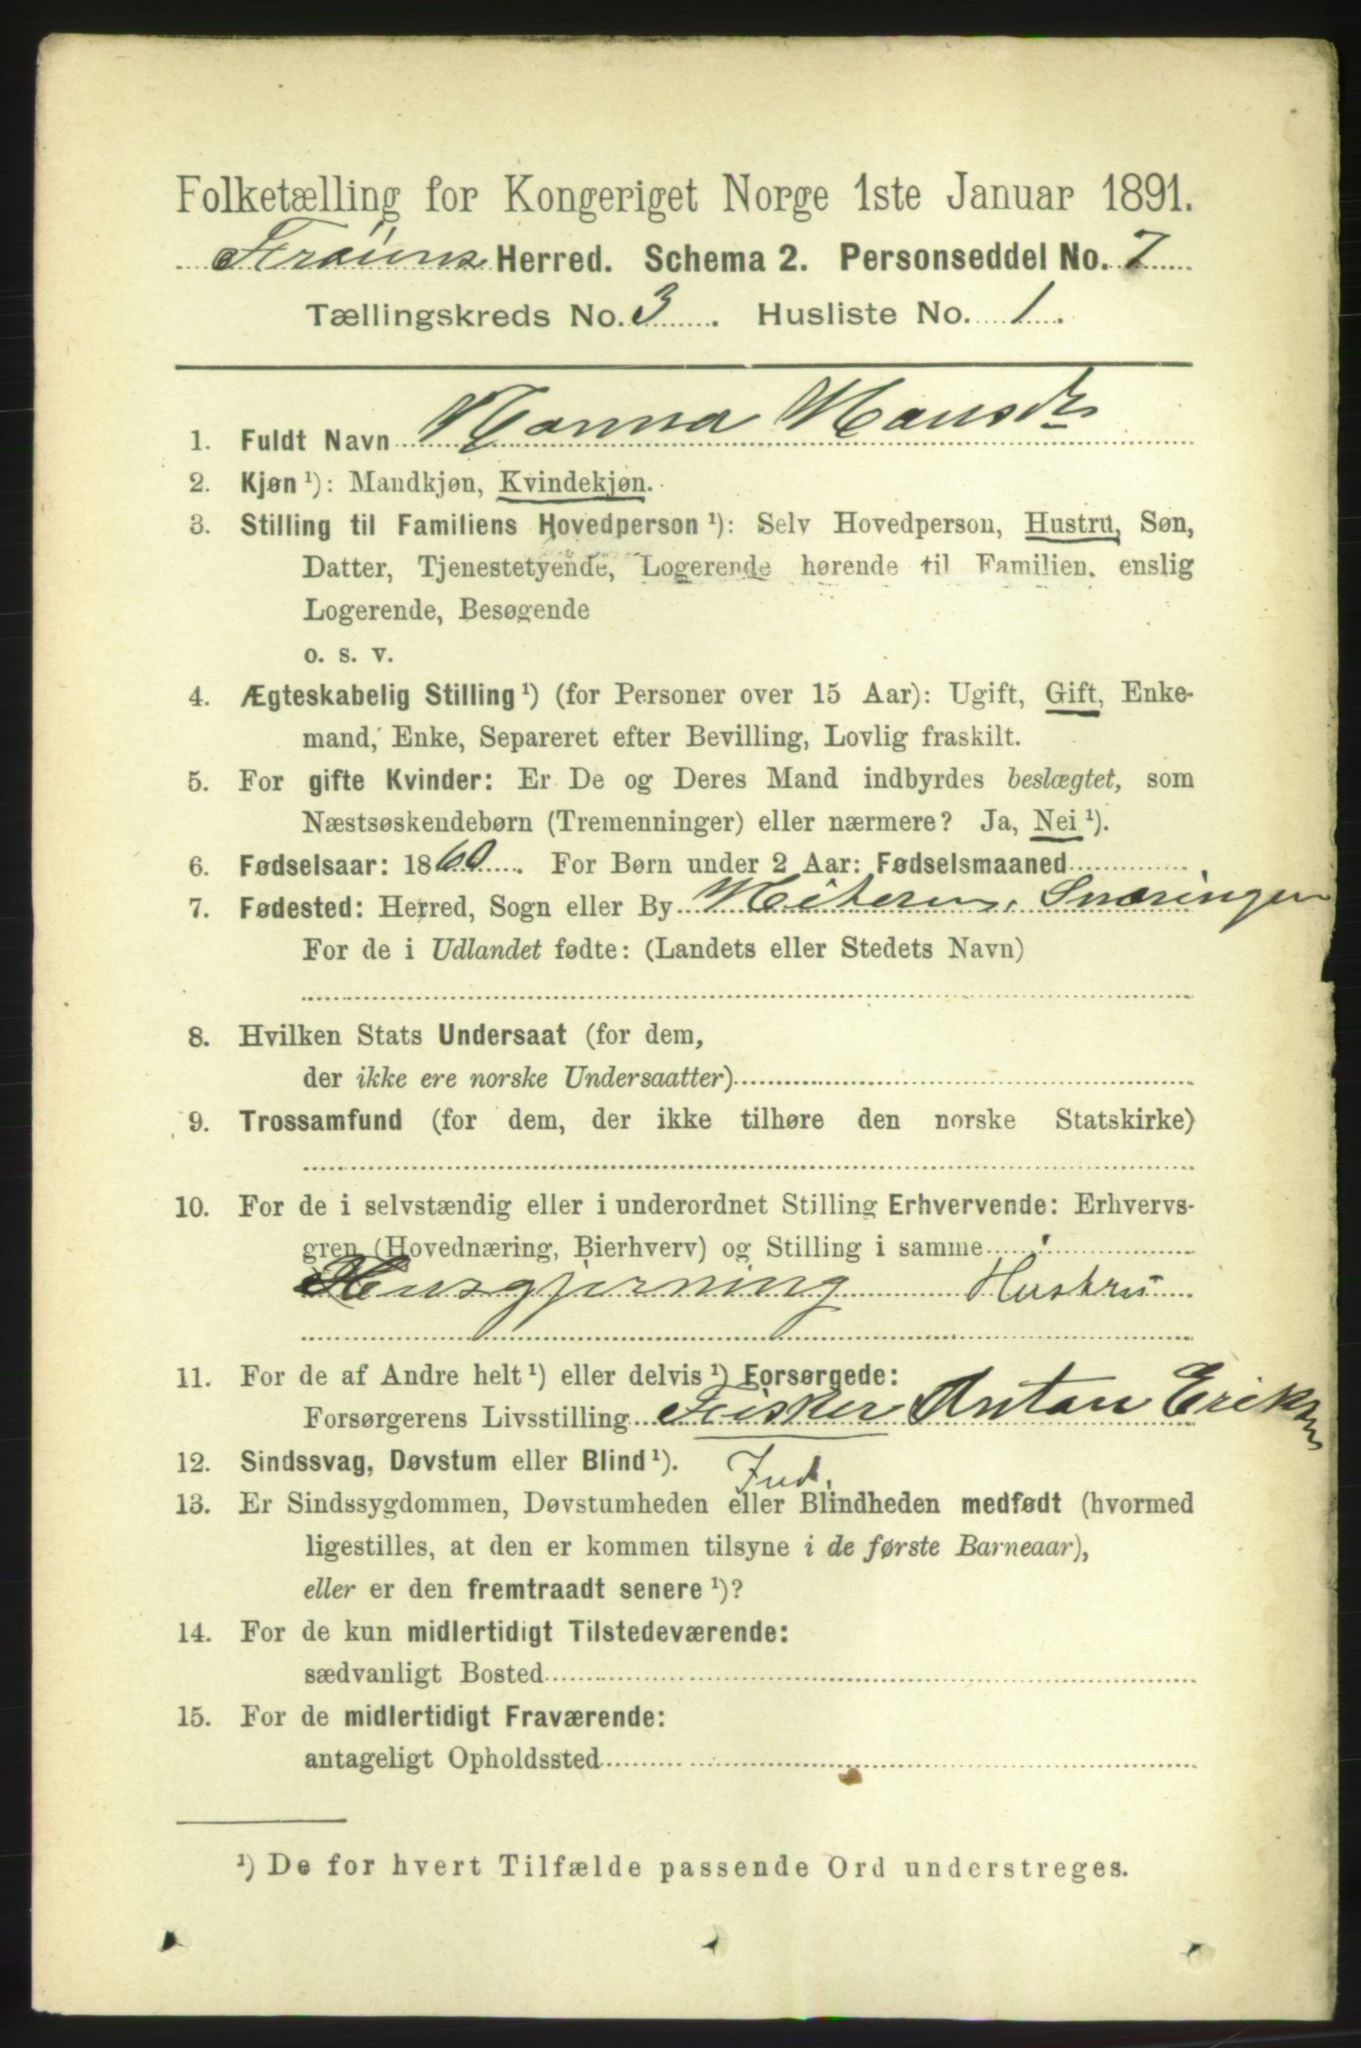 Folketælling for Kongeriget Norge 1ste Januar 1891.
Frøiens Herred. Schema 2. Personseddel No. 7
Tællingskreds No. 3. Husliste No. 1.
1. Fuldt Navn Hanna Hansdr
2. Kjøn ¹): Mandkjøn, Kvindekjøn.
3. Stilling til Familiens Hovedperson ¹): Selv Hovedperson, Hustru, Søn,
Datter, Tjenestetyende, Logerende hørende til Familien, enslig
Logerende, Besøgende
o. s. v.
4. Ægteskabelig Stilling ¹) (for Personer over 15 Aar): Ugift, Gift, Enke-
mand, Enke, Separeret efter Bevilling, Lovlig fraskilt.
5. For gifte Kvinder: Er De og Deres Mand indbyrdes beslægtet, som
Næstsøskendebørn (Tremenninger) eller nærmere? Ja, Nei ¹).
6. Fødselsaar: 1860. For Børn under 2 Aar: Fødselsmaaned
7. Fødested: Herred, Sogn eller By Hiteren, Snæringen
For de i Udlandet fødte: (Landets eller Stedets Navn)
8. Hvilken Stats Undersaat (for dem,
der ikke ere norske Undersaatter)
9. Trossamfund (for dem, der ikke tilhøre den norske Statskirke)
10. For de i selvstændig eller i underordnet Stilling Erhvervende: Erhvervs-
gren (Hovednæring, Bierhverv) og Stilling i samme
Husgjerning Hustru
11. For de af Andre helt ¹) eller delvis ¹) Forsørgede:
Forsørgerens Livsstilling Fisker Anton Eriksen
12. Sindssvag, Døvstum eller Blind ¹).
Ind.
13. Er Sindssygdommen, Døvstumheden eller Blindheden medfødt (hvormed
ligestilles, at den er kommen tilsyne i de første Barneaar),
eller er den fremtraadt senere ¹)?
14. For de kun midlertidigt Tilstedeværende:
sædvanligt Bosted
15. For de midlertidigt Fraværende:
antageligt Opholdssted
¹) De for hvert Tilfælde passende Ord understreges.